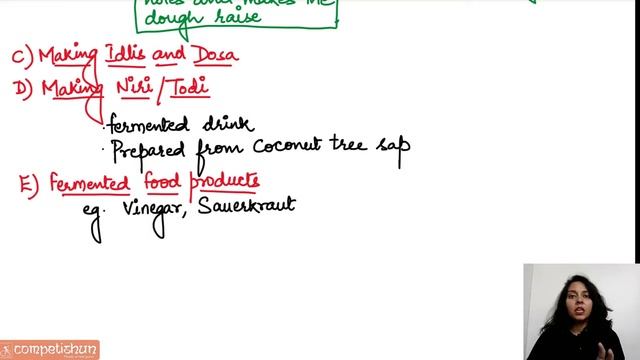 holes and makes the
dough raise
C) Making Idlis and Dosa
D) Making Niri/Todi
· fermented drink
· Prepared from Coconut tree sap
E) Fermented food products
eg. Vinegar, Sauerkraut
competishun